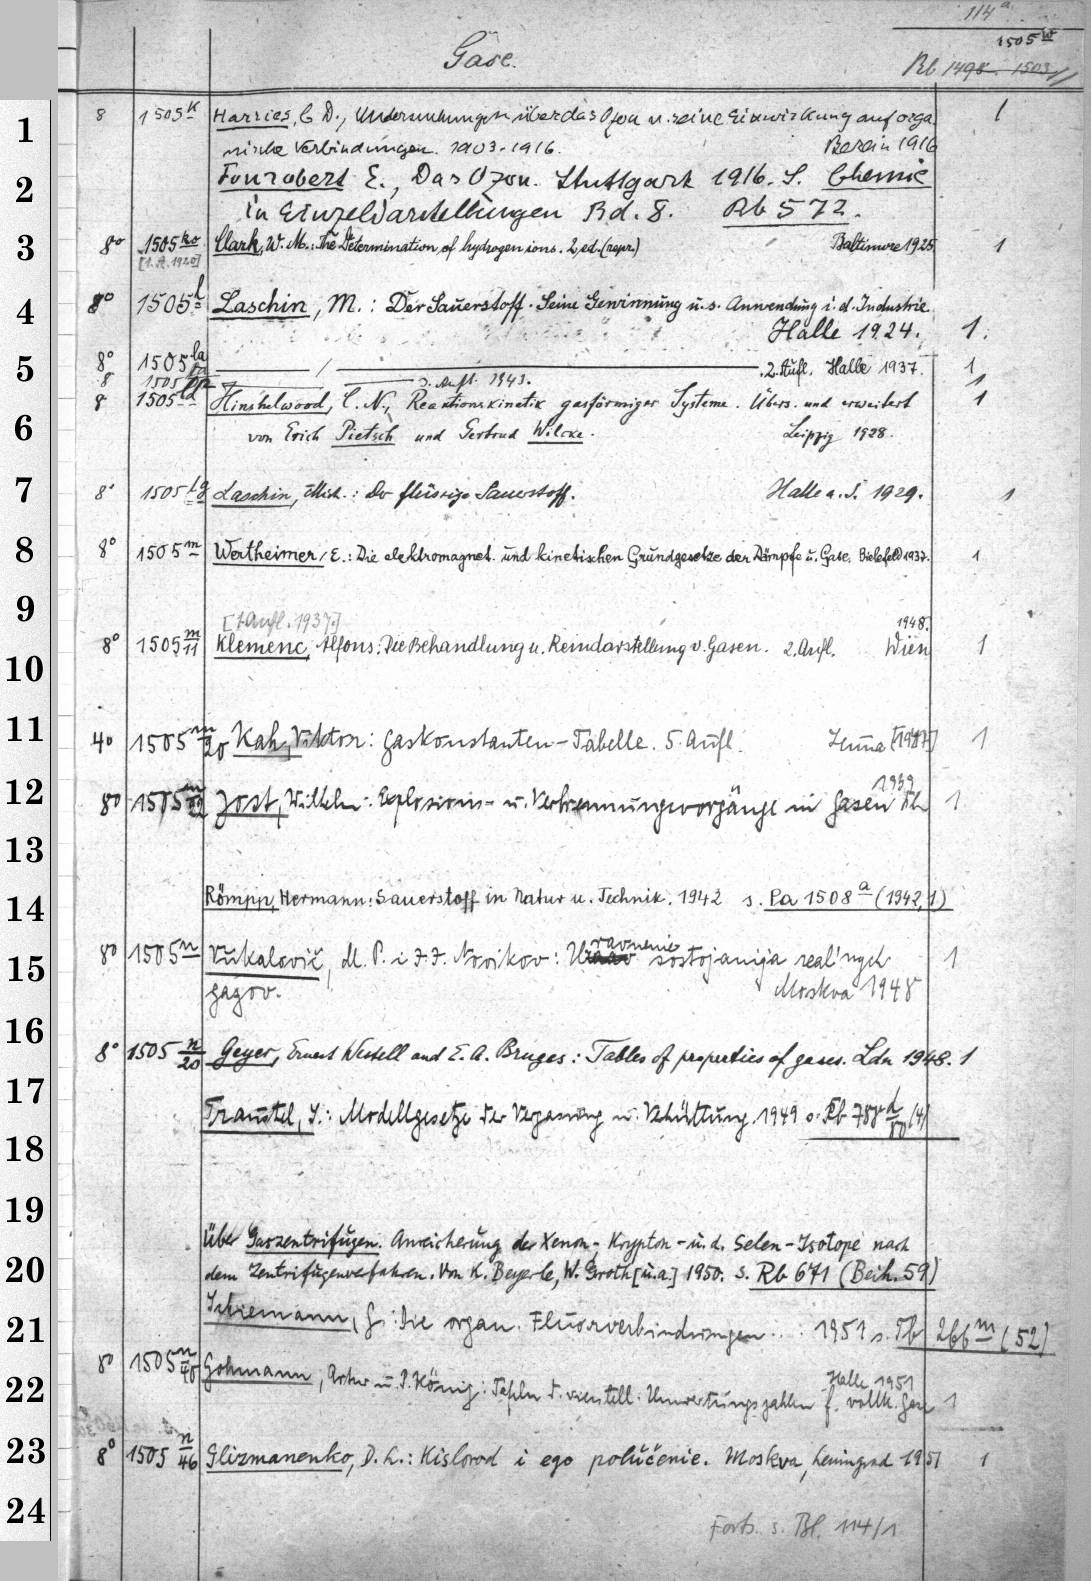 114 a
1505 w
Gase. Rb 1498. 1503
1
8 1505 k Harries, C D., Untersuchungen über das Ozon u. seine Einwirkung auf orga 1
nische Verbindungen. 1903-1916. Berlin 1916
2
Fonrobert E., Das Ozon. Stuttgart 1916. S. Chemie
in Einzeldarstellungen Bd. 8. Rb 572.
3
8° 1505 ko Clark, W. M.: The Determination of hydrogen ions. 2. ed. (repr.) Baltimore 1925 1
[1. A. 1920]
4
8° 1505 l Laschin, M.: Der Sauerstoff. Seine Gewinnung u. s. Anwendung i. d. Industrie.
Halle 1924. 1.
5
8° 1505 la / 2. Aufl. Halle 1937. 1
8 1505 3. Aufl. 1943. 1
8 1505 ld Hinshelwood, C. N., Reaktionskinetik gasförmiger Systeme. Übers. und erweitert 1
6
von Erich Pietsch und Gertrud Wilcke. Leipzig 1928.
7
8° 1505 lg Laschin, Mich.: Der flüssige Sauerstoff. Halle a. S. 1929. 1
8
8° 1505 m Wertheimer, E.: Die elektromagnet. und kinetischen Grundgesetze der Dämpfe u. Gase. Bielefeld 1937. 1
9
[1 Aufl. 1937.] 1948.
8° 1505 m/11 Klemenc, Alfons: Die Behandlung u. Reindarstellung v. Gasen. 2. Aufl. Wien 1
10
11
4° 1505 m/20 Kah, Viktor: Gaskonstanten-Tabelle. 5. Aufl. 1
12
1939
8° 1505 m Jost, Wilhelm: Explosions- u. Verbrennungsvorgänge in Gasen 1
13
14
Römpp, Hermann: Sauerstoff in Natur u. Technik. 1942 s. Pa 1508 a (1942,1)
15
ravnenie
8° 1505 n Vukalovič, M. P. i I. I. Novikov: U sostojanija real'nych 1
gazov. Moskva 1948
16
8° 1505 n/20 Geyer, Ernest Wessell and E. A. Bruges: Tables of properties of gases. Ldn 1948. 1
17
Traustel, S.: Modellgesetze der Vergasung u. Verhüttung. 1949 s. d/50 (4)
18
19
Über Gaszentrifugen. Anreicherung der Xenon-, Krypton- u. d. Selen-Isotope nach
20
dem Zentrifugenverfahren. Von K. Beyerle, W. Groth [u. a.] 1950. s. Rb 671 (Beih. 59)
21
Schiemann, G.: Die organ. Fluorverbindungen. 1951 s. Tb 266 m (52)
22
8° 1505 n/40 Gohmann, Artur u. P. König: Tafeln d. Umwertungszahlen f. vollk. Gase 1
Halle 1951
23
8° 1505 n/46 Glizmanenko, D. L.: Kislorod i ego polučenie. Moskva, Leningrad 1951 1
24
Forts. s. Bl. 114/1